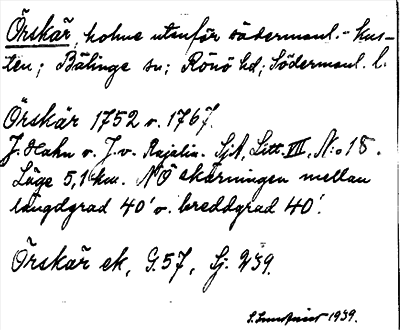 Örskär, holme utanför södermanl.-kus-
ten; Bälinge sn; Rönö hd; Södermanl. l.
Örskär 1752 o. 1767.
J. Hahn o. J. v. Rajalin. SjA, Litt. VII, N:o 18.
Läge 5,1 km. NÖ skärningen mellan
längdgrad 40' o. breddgrad 40'.
Örskär ek, G. 57, Sj. 239.
1939.